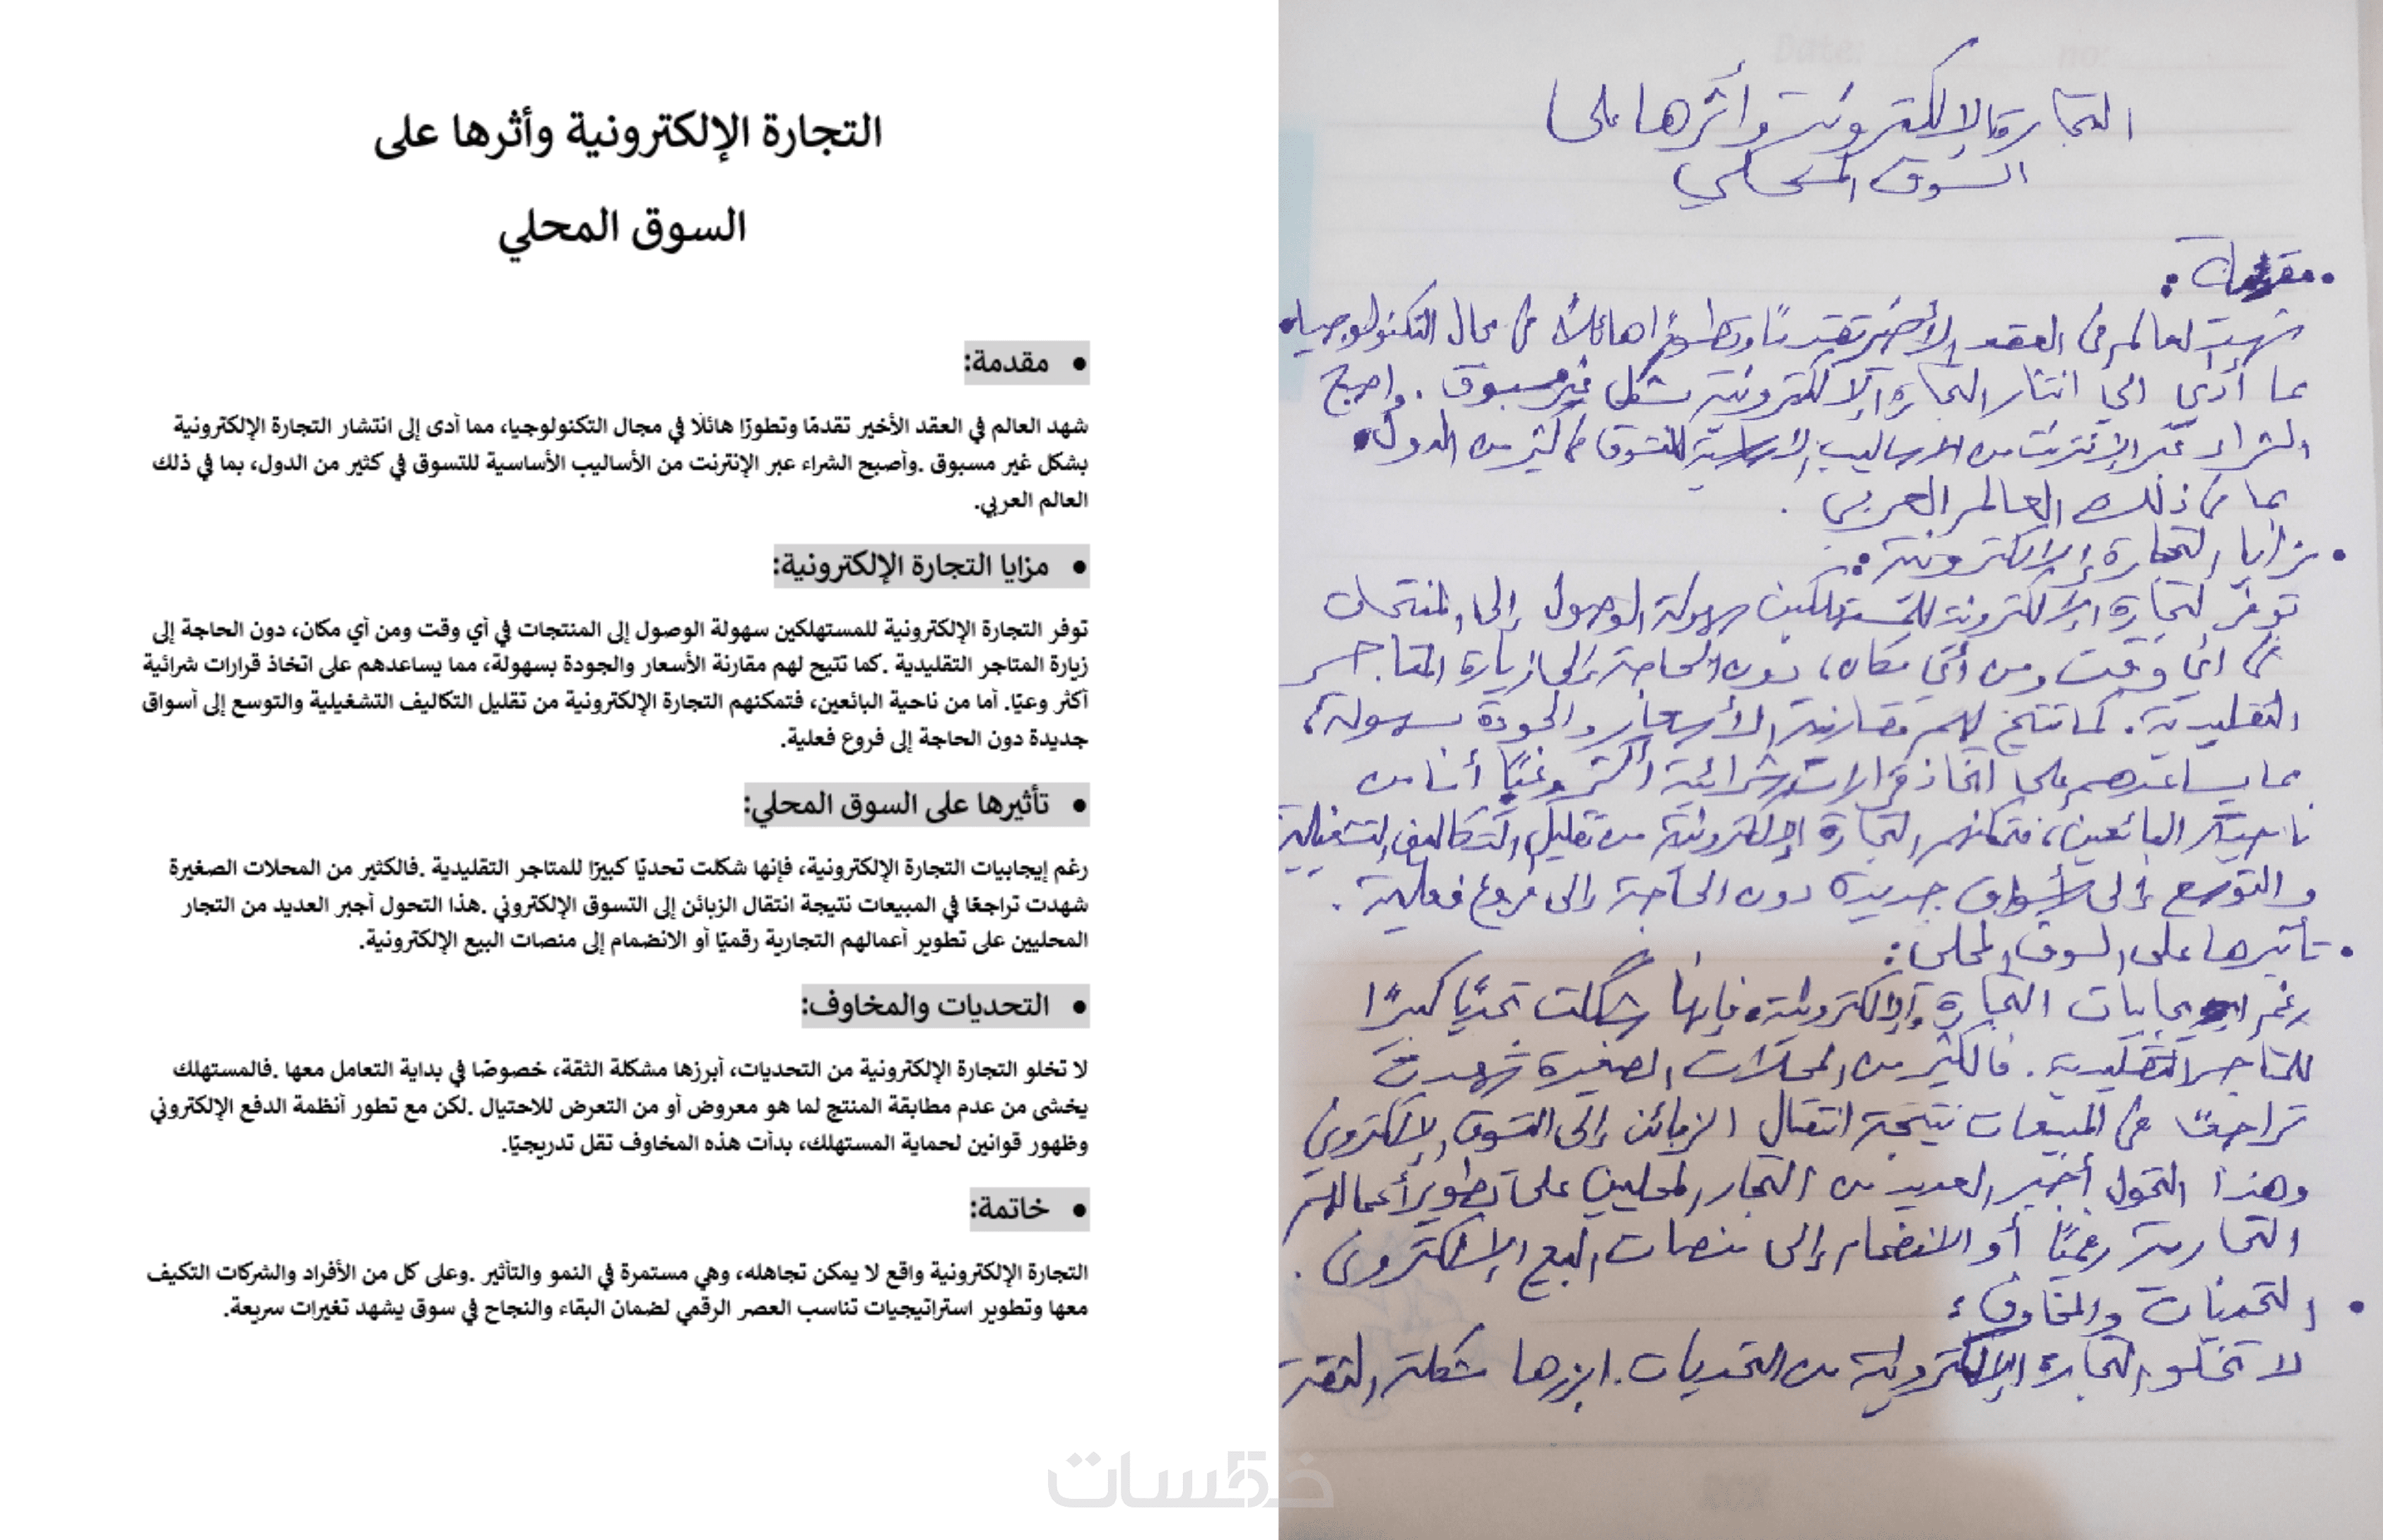 التجارة الإلكترونية وأثرها على
السوق المحلي
• مقدمة:
شهد العالم في العقد الأخير تقدمًا وتطورًا هائلًا في مجال التكنولوجيا، مما أدى إلى انتشار التجارة الإلكترونية
بشكل غير مسبوق .وأصبح الشراء عبر الإنترنت من الأساليب الأساسية للتسوق في كثير من الدول، بما في ذلك
العالم العربي.
• مزايا التجارة الإلكترونية:
توفر التجارة الإلكترونية للمستهلكين سهولة الوصول إلى المنتجات في أي وقت ومن أي مكان، دون الحاجة إلى
زيارة المتاجر التقليدية .كما تتيح لهم مقارنة الأسعار والجودة بسهولة، مما يساعدهم على اتخاذ قرارات شرائية
أكثر وعيًا. أما من ناحية البائعين، فتمكنهم التجارة الإلكترونية من تقليل التكاليف التشغيلية والتوسع إلى أسواق
جديدة دون الحاجة إلى فروع فعلية.
• تأثيرها على السوق المحلي:
رغم إيجابيات التجارة الإلكترونية، فإنها شكلت تحديًا كبيرًا للمتاجر التقليدية .فالكثير من المحلات الصغيرة
شهدت تراجعًا في المبيعات نتيجة انتقال الزبائن إلى التسوق الإلكتروني .هذا التحول أجبر العديد من التجار
المحليين على تطوير أعمالهم التجارية رقميًا أو الانضمام إلى منصات البيع الإلكترونية.
• التحديات والمخاوف:
لا تخلو التجارة الإلكترونية من التحديات، أبرزها مشكلة الثقة، خصوصًا في بداية التعامل معها .فالمستهلك
يخشى من عدم مطابقة المنتج لما هو معروض أو من التعرض للاحتيال .لكن مع تطور أنظمة الدفع الإلكتروني
وظهور قوانين لحماية المستهلك، بدأت هذه المخاوف تقل تدريجيًا.
• خاتمة:
التجارة الإلكترونية واقع لا يمكن تجاهله، وهي مستمرة في النمو والتأثير .وعلى كل من الأفراد والشركات التكيف
معها وتطوير استراتيجيات تناسب العصر الرقمي لضمان البقاء والنجاح في سوق يشهد تغيرات سريعة.
Date: no:
التجارة الإلكترونية وأثرها على
السوق المحلي
• مقدمة :
شهد العالم في العقد الأخير تقدمًا وتطورًا هائلًا في مجال التكنولوجيا،
مما أدى الى انتشار التجارة الإلكترونية بشكل غير مسبوق . واصبح
الشراء عبر الإنترنت من الاساليب الاساسية للتسوق في كثير من الدول،
بما في ذلك العالم العربي .
• مزايا التجارة الإلكترونية :
توفر التجارة الإلكترونية للمستهلكين سهولة الوصول إلى المنتجات
في أي وقت ومن أي مكان، دون الحاجة إلى زيارة المتاجر
التقليدية. كما تتيح لهم مقارنة الأسعار والجودة بسهولة،
مما يساعدهم على اتخاذ قرارات شرائية أكثر وعيًا أما من
ناحية البائعين، فتمكنهم التجارة الإلكترونية من تقليل التكاليف التشغيلية
والتوسع إلى أسواق جديدة دون الحاجة إلى فروع فعلية .
• تأثيرها على السوق المحلي :
رغم ايجابيات التجارة الإلكترونية، فإنها شكلت تحديًا كبيرًا
للمتاجر التقليدية . فالكثير من المحلات الصغيرة شهدت
تراجعًا في المبيعات نتيجة انتقال الزبائن إلى التسوق الإلكتروني
وهذا التحول أجبر العديد من التجار المحليين على تطوير أعمالهم
التجارية رقميًا أو الانضمام إلى منصات البيع الإلكتروني .
• التحديات والمخاوف :
لا تخلو التجارة الإلكترونية من التحديات . ابرزها مشكلة الثقة
خمسات